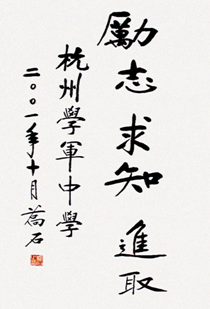 勵志求知進取
杭州學軍中學
二〇〇一年十月喬石